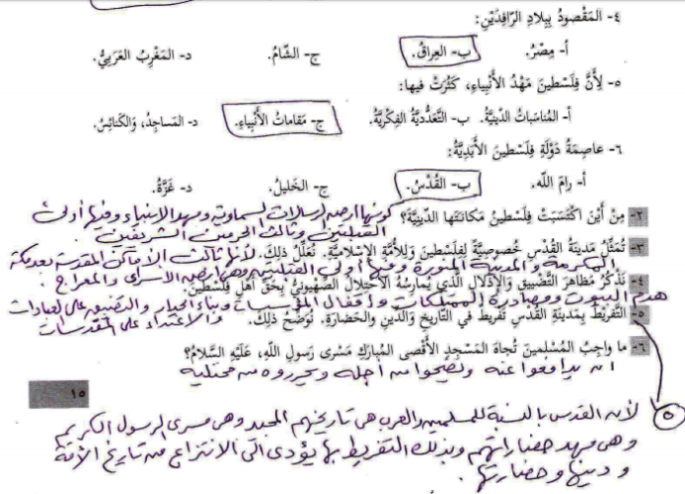 ٤- المَقْصودُ بِبِلادِ الرّافِدَيْنِ:
أ- مِصْرُ. ب- العِراقُ. ج- الشّامُ. د- المَغْرِبُ العَرَبِيُّ.
٥- لِأَنَّ فِلَسْطينَ مَهْدُ الأَنْبِياءِ، كَثُرَتْ فيها:
أ- المُناسَباتُ الدّينِيَّةُ. ب- التَّعَدُّدِيَّةُ الفِكْرِيَّةُ. ج- مَقاماتُ الأَنْبِياءِ. د- المَساجِدُ، وَالكَنائِسُ.
٦- عاصِمَةُ دَوْلَةِ فِلَسْطينَ الأَبَدِيَّةُ:
أ- رامَ اللّه. ب- القُدْسُ. ج- الخَليلُ. د- غَزَّةُ.
٢- مِنْ أَيْنَ اكْتَسَبَتْ فِلَسْطينُ مَكانَتَها الدّينِيَّةَ؟ كونها ارض الرسالات السماوية ومهد الانبياء وفيها أولى
القبلتين وثالث الحرمين الشريفين
٣- تُمَثِّلُ مَدينَةُ القُدْسِ خُصوصِيَّةً لِفِلَسْطينَ وَلِلْأُمَّةِ الإِسْلامِيَّةِ. نُعَلِّلُ ذلِكَ. لأنها ثالث الأماكن المقدسة بعد مكة
المكرمة والمدينة المنورة وفيها أولى القبلتين وهي ارض الاسراء والمعراج.
٤- نَذْكُرُ مَظاهِرَ التَّضْييقِ وَالإِذْلالِ الَّذي يُمارِسُهُ الاحْتِلالُ الصُّهْيونِيُّ بِحَقِّ أَهْلِ فِلَسْطينَ.
هدم البيوت ومصادرة الممتلكات واقفال المؤسسات وبناء الجدار والتضييق على العبادات
والاعتداء على المقدسات
٥- التَّفْريطُ بِمَدينَةِ القُدْسِ تَفْريطٌ في التّاريخِ وَالدّينِ وَالحَضارَةِ. نُوَضِّحُ ذلِكَ.
٦- ما واجِبُ المُسْلِمينَ تُجاهَ المَسْجِدِ الأَقْصى المُبارَكِ مَسْرى رَسولِ اللّهِ، عَلَيْهِ السَّلامُ؟
ان يدافعوا عنه ويضحوا من أجله ويحرروه من محتليه
١٥
٥ لأن القدس بالنسبة للمسلمين والعرب هي تاريخهم المجيد وهي مسرى الرسول الكريم
وهي مهد حضاراتهم وبذلك التفريط بها يؤدي الى الانتزاع من تاريخ الأمة
ودينها وحضارتها.